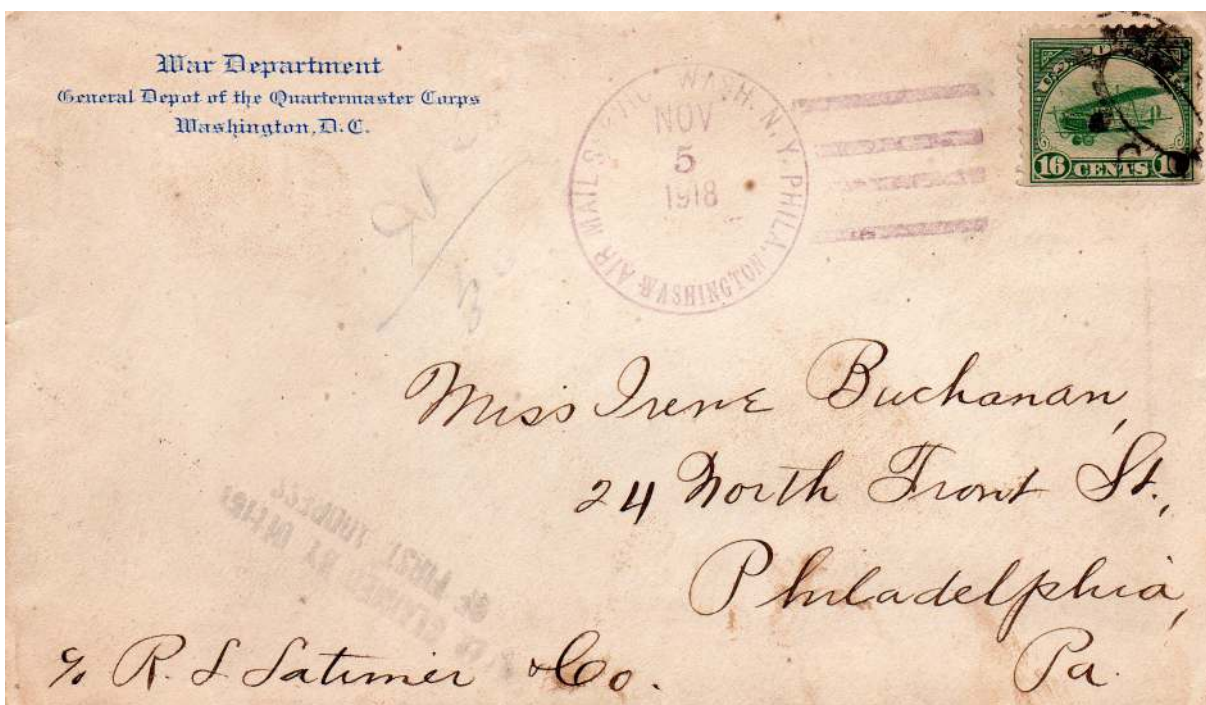 War Department
General Depot of the Quartermaster Corps
Washington, D.C.
AIR MAIL WASH. N.Y. PHILA.
NOV
5
1918
WASHINGTON
16 CENTS
Miss Irene Buchanan,
24 North Front St.,
Philadelphia,
Pa.
c/o R. S. Latimer & Co.